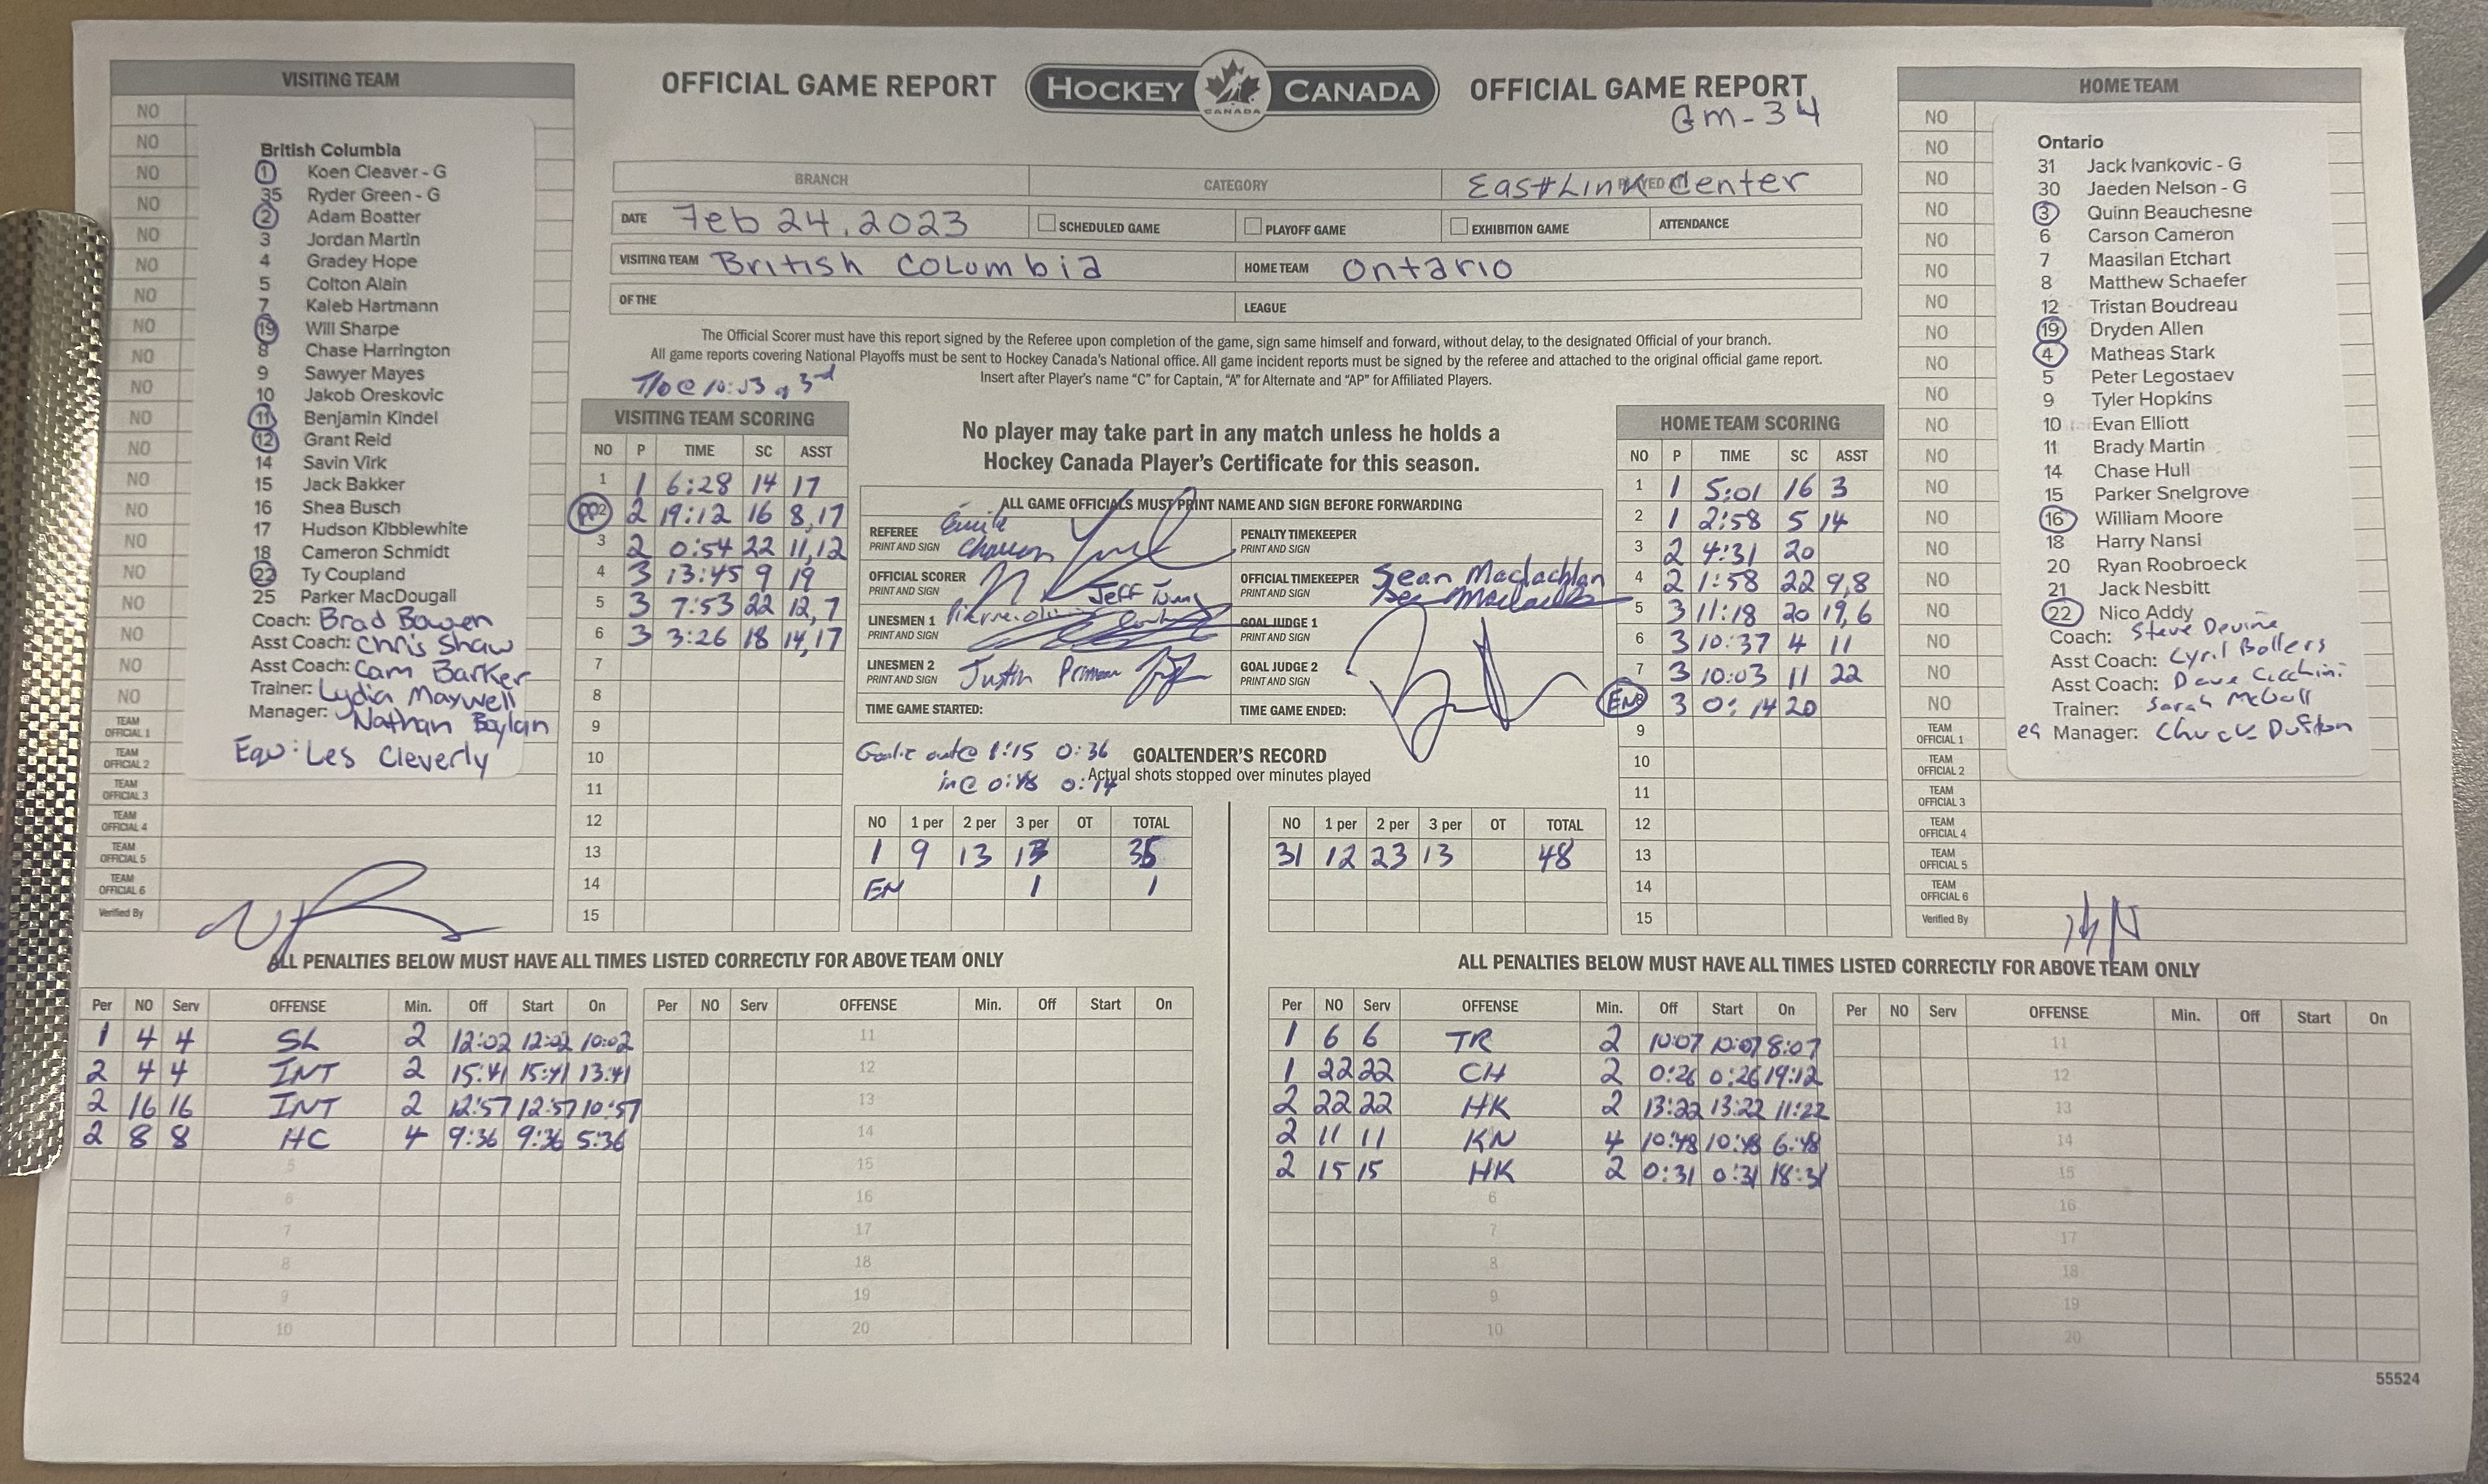 OFFICIAL GAME REPORT HOCKEY CANADA CANADA OFFICIAL GAME REPORT
Gm-34
VISITING TEAM
NO
NO
NO
NO
NO
NO
NO
NO
NO
NO
NO
NO
NO
NO
NO
NO
NO
NO
NO
NO
British Columbia
1 Koen Cleaver - G
35 Ryder Green - G
2 Adam Boatter
3 Jordan Martin
4 Gradey Hope
5 Colton Alain
7 Kaleb Hartmann
19 Will Sharpe
8 Chase Harrington
9 Sawyer Mayes
10 Jakob Oreskovic
11 Benjamin Kindel
12 Grant Reid
14 Savin Virk
15 Jack Bakker
16 Shea Busch
17 Hudson Kibblewhite
18 Cameron Schmidt
22 Ty Coupland
25 Parker MacDougall
Coach: Brad Bowen
Asst Coach: Chris Shaw
Asst Coach: Cam Barker
Trainer: Lydia Maywell
Manager: Nathan Boylan
Equ: Les Cleverly
TEAM OFFICIAL 1
TEAM OFFICIAL 2
TEAM OFFICIAL 3
TEAM OFFICIAL 4
TEAM OFFICIAL 5
TEAM OFFICIAL 6
Verified By
BRANCH CATEGORY EastLink Center
DATE Feb 24, 2023 SCHEDULED GAME PLAYOFF GAME EXHIBITION GAME ATTENDANCE
VISITING TEAM British Columbia HOME TEAM Ontario
OF THE LEAGUE
The Official Scorer must have this report signed by the Referee upon completion of the game, sign same himself and forward, without delay, to the designated Official of your branch.
All game reports covering National Playoffs must be sent to Hockey Canada's National office. All game incident reports must be signed by the referee and attached to the original official game report.
Insert after Player's name "C" for Captain, "A" for Alternate and "AP" for Affiliated Players.
T/O @ 10:03 3rd
VISITING TEAM SCORING
NO P TIME SC ASST
1 1 6:28 14 17
PP2 2 19:12 16 8,17
3 2 0:54 22 11,12
4 3 13:45 9 19
5 3 7:53 22 12,7
6 3 3:26 18 14,17
7
8
9
10
11
12
13
14
15
No player may take part in any match unless he holds a
Hockey Canada Player's Certificate for this season.
ALL GAME OFFICIALS MUST PRINT NAME AND SIGN BEFORE FORWARDING
REFEREE PRINT AND SIGN
PENALTY TIMEKEEPER PRINT AND SIGN
OFFICIAL SCORER PRINT AND SIGN Jeff
OFFICIAL TIMEKEEPER PRINT AND SIGN Sean Maclachlan
LINESMEN 1 PRINT AND SIGN
GOAL JUDGE 1 PRINT AND SIGN
LINESMEN 2 PRINT AND SIGN Justin
GOAL JUDGE 2 PRINT AND SIGN
TIME GAME STARTED: TIME GAME ENDED:
Goalie out @ 1:15 0:36
in @ 0:48 0:14
GOALTENDER'S RECORD
Actual shots stopped over minutes played
NO 1 per 2 per 3 per OT TOTAL
1 9 13 13 35
EN 1 1
NO 1 per 2 per 3 per OT TOTAL
31 12 23 13 48
HOME TEAM SCORING
NO P TIME SC ASST
1 1 5:01 16 3
2 1 2:58 5 14
3 2 4:31 20
4 2 1:58 22 9,8
5 3 11:18 20 19,6
6 3 10:37 4 11
7 3 10:03 11 22
EN8 3 0:14 20
9
10
11
12
13
14
15
HOME TEAM
NO
NO
NO
NO
NO
NO
NO
NO
NO
NO
NO
NO
NO
NO
NO
NO
NO
NO
NO
NO
Ontario
31 Jack Ivankovic - G
30 Jaeden Nelson - G
3 Quinn Beauchesne
6 Carson Cameron
7 Maasilan Etchart
8 Matthew Schaefer
12 Tristan Boudreau
19 Dryden Allen
4 Matheas Stark
5 Peter Legostaev
9 Tyler Hopkins
10 Evan Elliott
11 Brady Martin
14 Chase Hull
15 Parker Snelgrove
16 William Moore
18 Harry Nansi
20 Ryan Roobroeck
21 Jack Nesbitt
22 Nico Addy
Coach: Steve Devine
Asst Coach: Cyril Bollers
Asst Coach: Dave Cicchini
Trainer: Sarah McCall
eq Manager: Chuck Dufton
TEAM OFFICIAL 1
TEAM OFFICIAL 2
TEAM OFFICIAL 3
TEAM OFFICIAL 4
TEAM OFFICIAL 5
TEAM OFFICIAL 6
Verified By
ALL PENALTIES BELOW MUST HAVE ALL TIMES LISTED CORRECTLY FOR ABOVE TEAM ONLY
Per NO Serv OFFENSE Min. Off Start On
1 4 4 SL 2 12:02 12:02 10:02
2 4 4 INT 2 15:41 15:41 13:41
2 16 16 INT 2 12:57 12:57 10:57
2 8 8 HC 4 9:36 9:36 5:36
5
6
7
8
9
10
Per NO Serv OFFENSE Min. Off Start On
11
12
13
14
15
16
17
18
19
20
ALL PENALTIES BELOW MUST HAVE ALL TIMES LISTED CORRECTLY FOR ABOVE TEAM ONLY
Per NO Serv OFFENSE Min. Off Start On
1 6 6 TR 2 10:07 10:07 8:07
1 22 22 CH 2 0:26 0:26 19:12
2 22 22 HK 2 13:22 13:22 11:22
2 11 11 KN 4 10:48 10:48 6:48
2 15 15 HK 2 0:31 0:31 18:31
6
7
8
9
10
Per NO Serv OFFENSE Min. Off Start On
11
12
13
14
15
16
17
18
19
20
55524